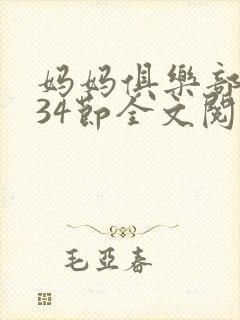 妈妈俱樂部
34節全文閱
毛亞春